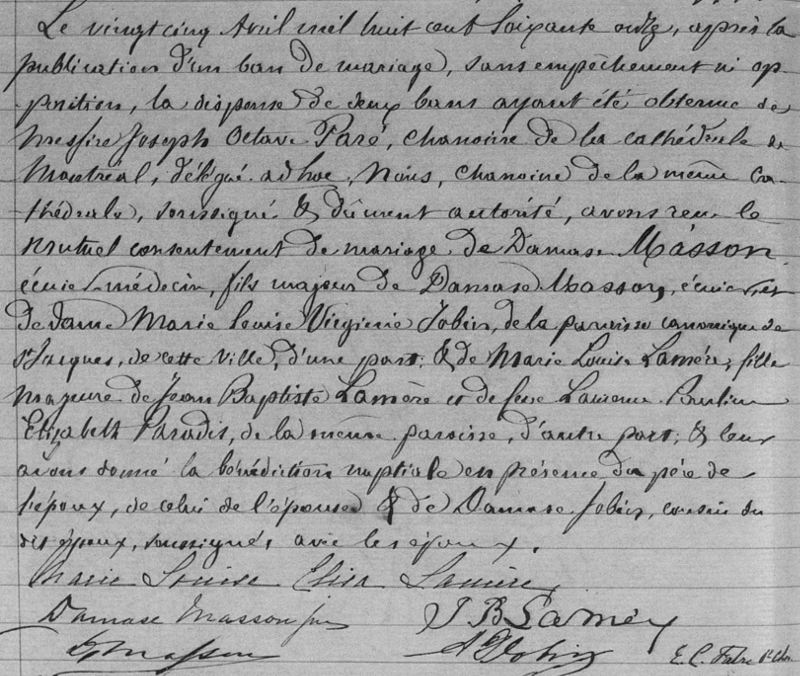 Le vingt cinq Avril mil huit cent soixante onze, après la
publication d'un ban de mariage, sans empêchement ni op-
position, la dispense de deux bans ayant été obtenue de
Messire Joseph Octave Paré, chanoine de la cathédrale de
Montréal, délégué ad hoc, Nous, chanoine de la même ca-
thédrale, soussigné & dûment autorisé, avons reçu le
mutuel consentement de mariage de Damase Masson
écuier, médecin, fils majeur de Damase Masson, écuier, et
de dame Marie Louise Virginie Jobin, de la paroisse canonique de
St Jacques, de cette ville, d'une part; & de Marie Louise Lamère, fille
majeure de Jean Baptiste Lamère et de feue Laurence Pauline
Elizabeth Paradis, de la même paroisse, d'autre part; & leur
avons donné la bénédiction nuptiale en présence du père de
l'époux, de celui de l'épouse & de Damase Jobin, cousin du
dit époux, soussignés avec les époux.
Marie Louise Eliza Lamère
Damase Masson J B Lamère
D Masson Jobin E. C. Fabre Ptre Chne.